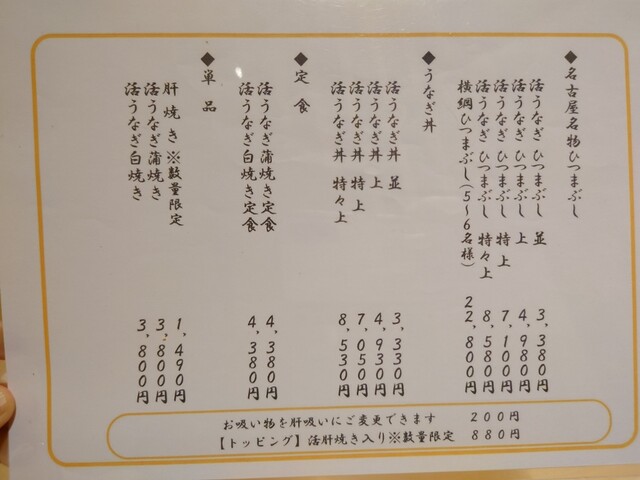 ◆名古屋名物ひつまぶし
活うなぎ ひつまぶし 並 3,380円
活うなぎ ひつまぶし 上 4,980円
活うなぎ ひつまぶし 特上 7,100円
活うなぎ ひつまぶし 特々上 8,580円
横綱ひつまぶし(5〜6名様) 22,800円
◆うなぎ丼
活うなぎ丼 並 3,330円
活うなぎ丼 上 4,930円
活うなぎ丼 特上 7,050円
活うなぎ丼 特々上 8,530円
◆定食
活うなぎ蒲焼き定食 4,380円
活うなぎ白焼き定食 4,380円
◆単品
肝焼き※数量限定 1,490円
活うなぎ蒲焼き 3,800円
活うなぎ白焼き 3,800円
お吸い物を肝吸いにご変更できます 200円
【トッピング】活肝焼き入り※数量限定 880円